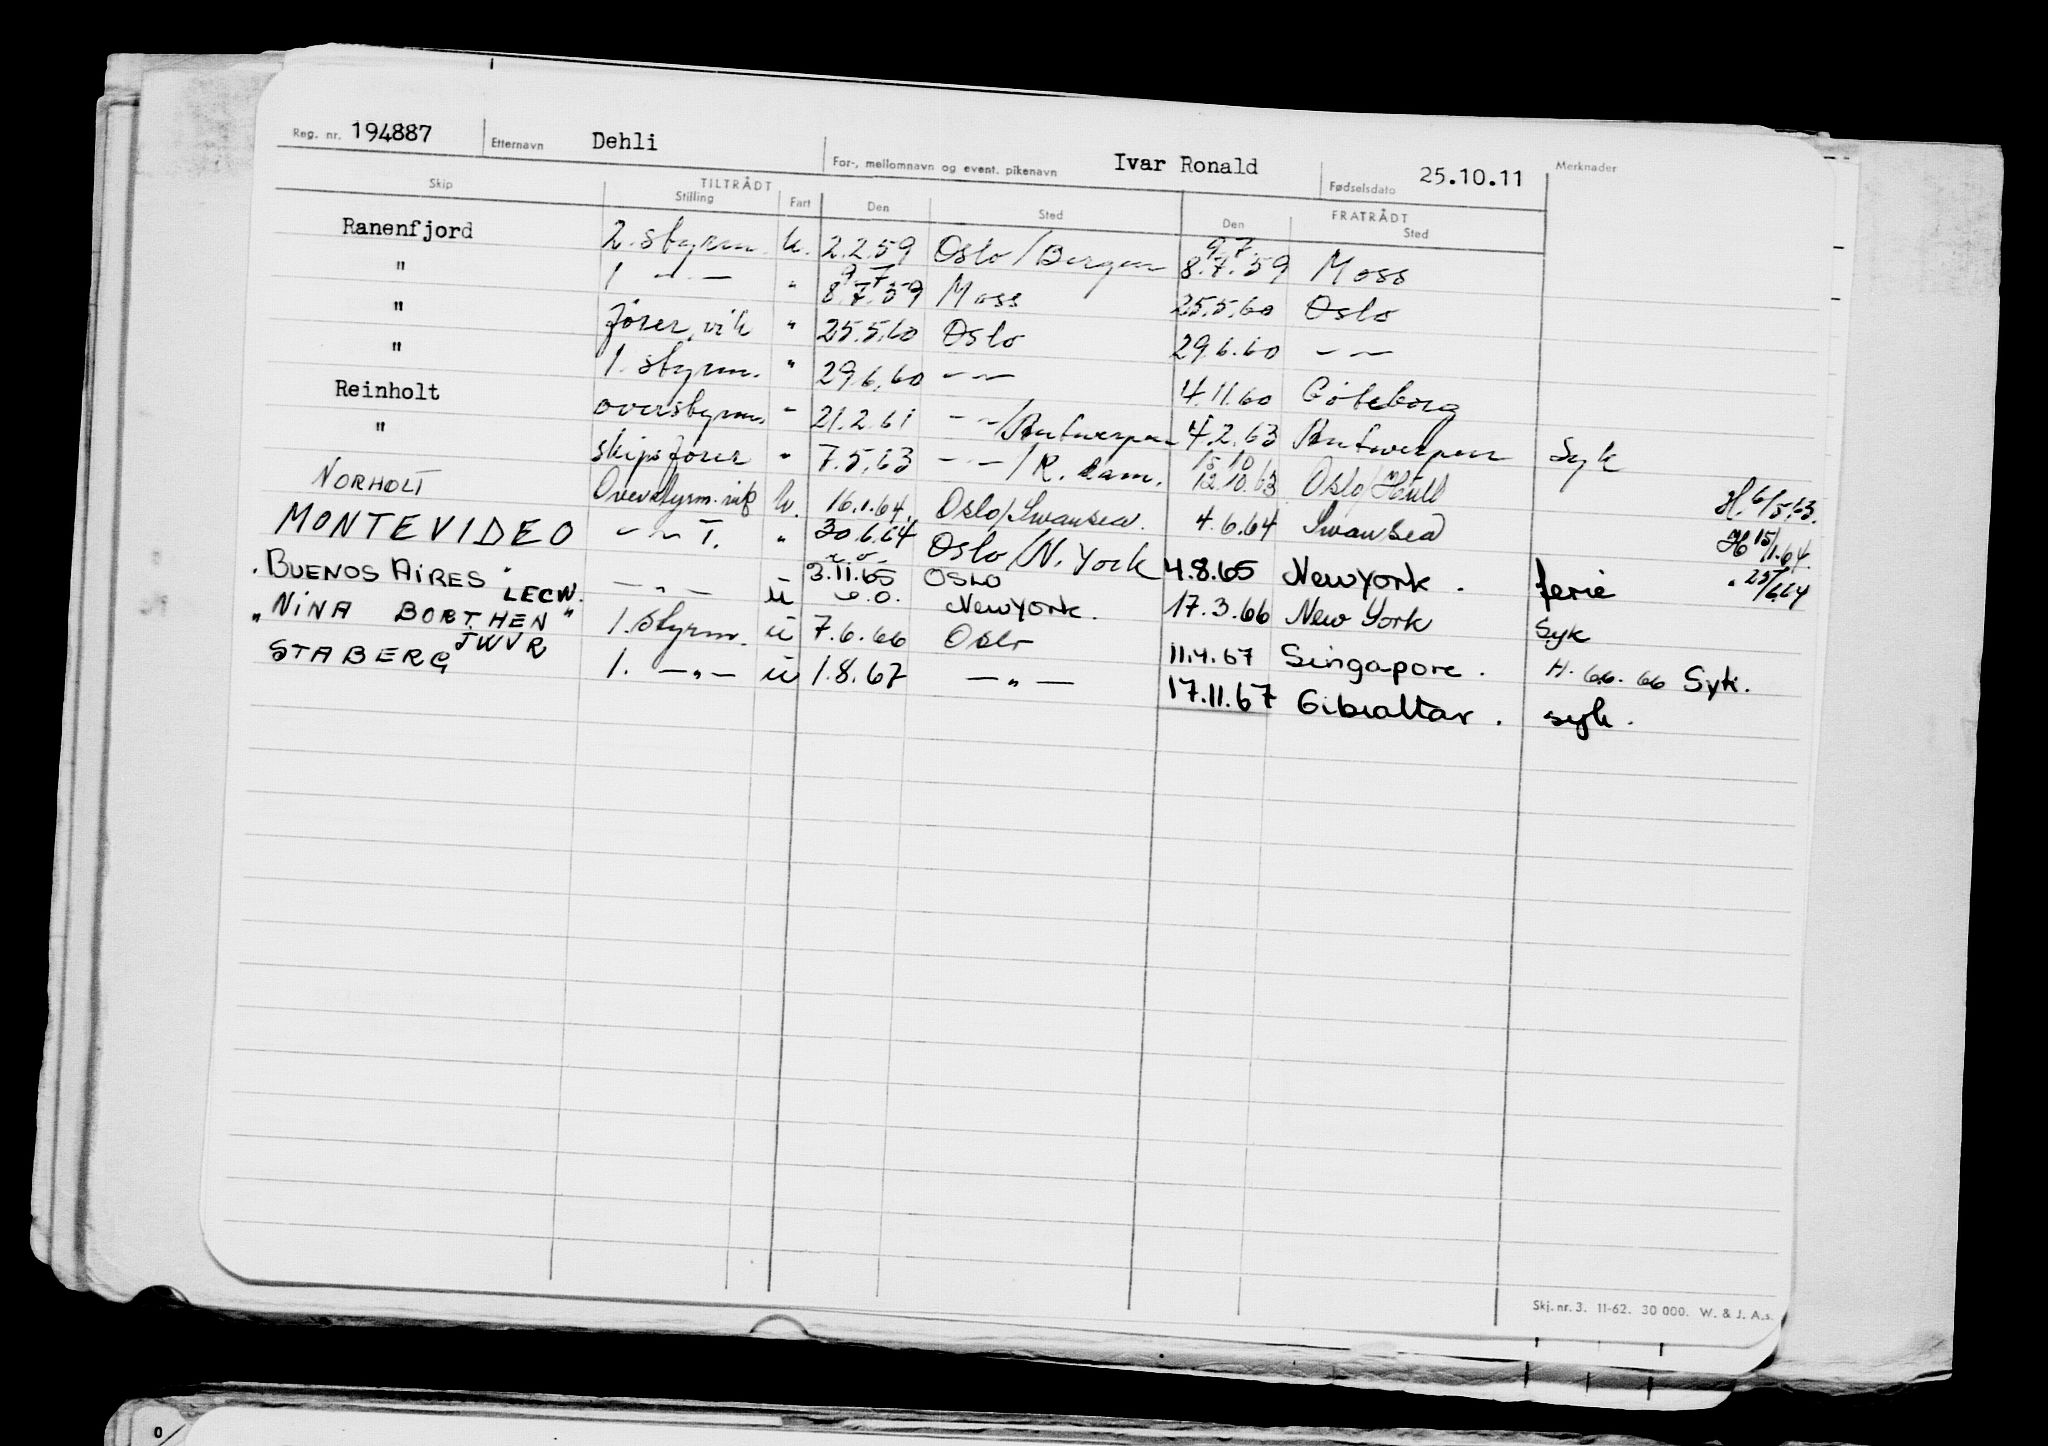 Reg. nr. 194887 Etternavn Dehli For-, mellomnavn og event. pikenavn Ivar Ronald Fødselsdato 25.10.11 Merknader
Skip TILTRÅDT Stilling Fart Den Sted FRATRÅDT Den Sted
Ranenfjord 2. styrm. u. 2.2.59 Oslo/Bergen 9 7 8.7.59 Moss
" 1 — " — " 9 7 8.7.59 Moss 25.5.60 Oslo
" fører, vik " 25.5.60 Oslo 29.6.60 — " —
" 1. styrm. " 29.6.60 — " — 4.11.60 Göteborg
Reinholt overstyrm. " 21.2.61 — " —/Antwerpen 4.2.63 Antwerpen Syk
" skipsfører " 7.5.63 — " —/R.dam. 15 10 12.10.63 Oslo/Hull H. 6/5.63.
NORHOLT Overstyrm. vik U. 16.1.64. Oslo/Swansea. 4.6.64 Swansea H 15/1.64.
MONTEVIDEO — " — T. " 30.6.64 Oslo/N. York 4.8.65 New York . ferie " 25/6.64
"BUENOS AIRES" LECW. — " — u 3.11.65 OSLO New York. 17.3.66 New York Syk
"NINA BORTHEN" JWVR 1. Styrm. u 7.6.66 Oslo 11.4.67 Singapore . H. 6.6. 66 Syk.
STABERG 1. — " — u 1.8.67 — " — 17.11.67 Gibraltar . syk .
Skj. nr. 3. 11-62. 30 000. W. & J. A.s.
0